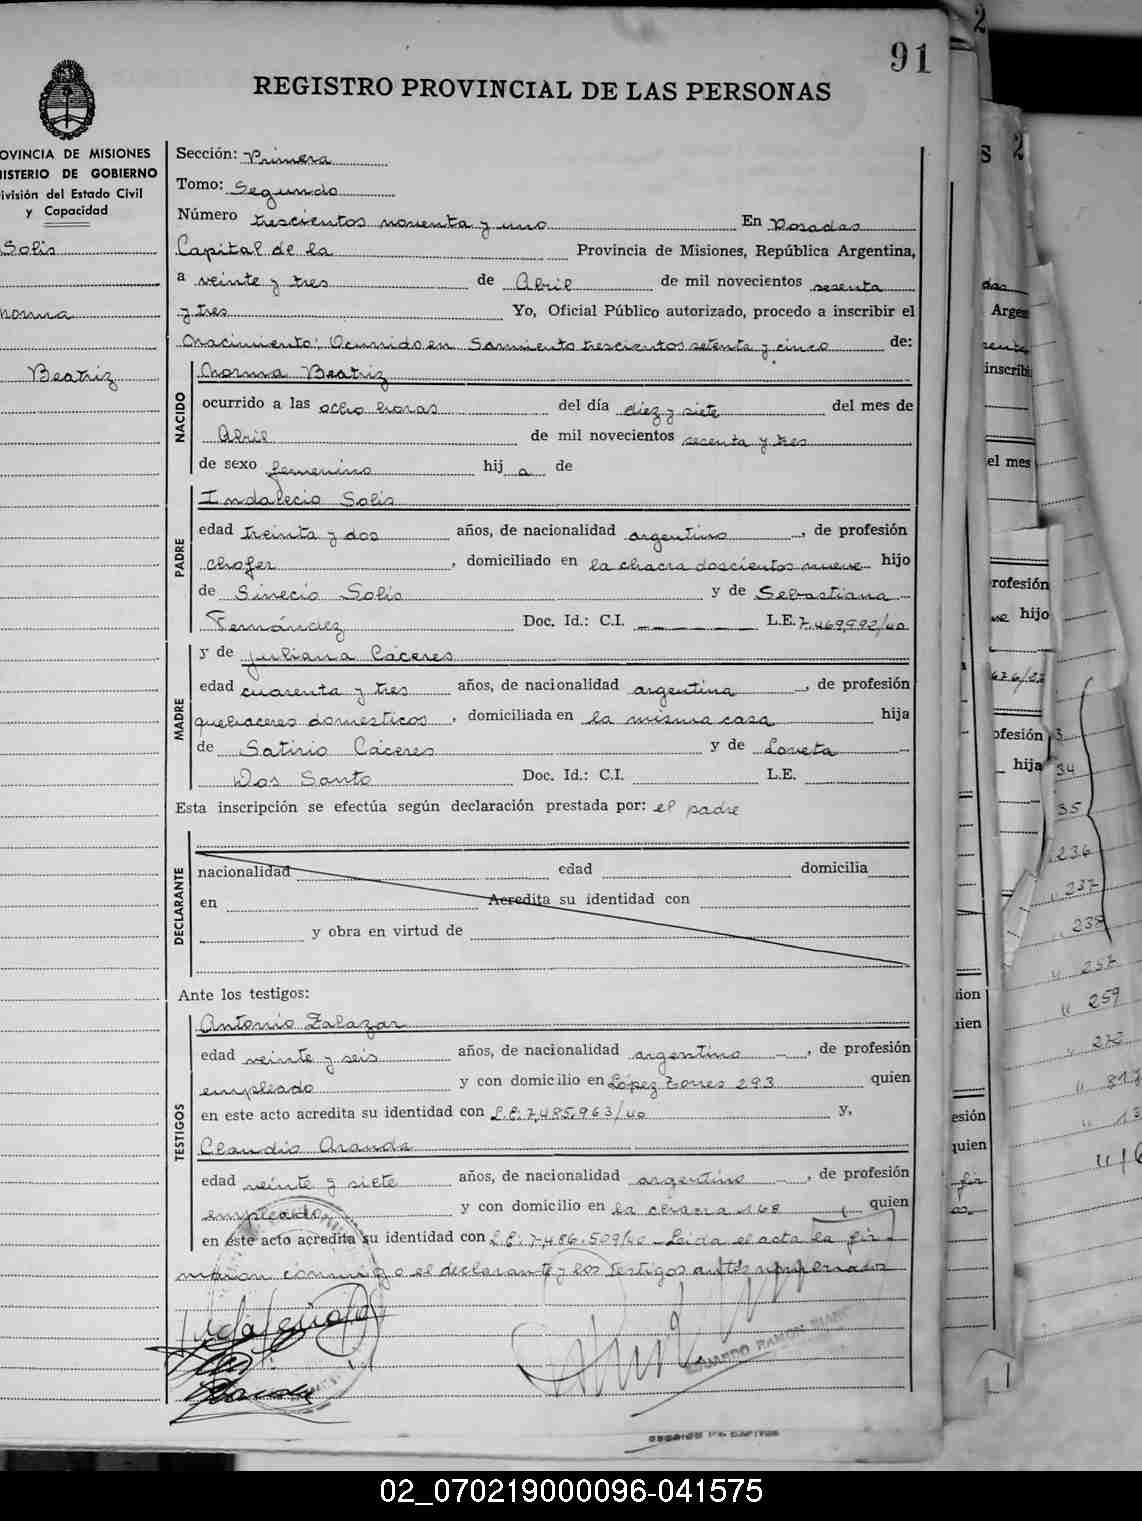 91
REGISTRO PROVINCIAL DE LAS PERSONAS
OVINCIA DE MISIONES
NISTERIO DE GOBIERNO
ivisión del Estado Civil
y Capacidad
Solis
Norma
Beatriz
Sección: Primera
Tomo: Segundo
Número trescientos noventa y uno En Posadas
Capital de la Provincia de Misiones, República Argentina,
a veinte y tres de Abril de mil novecientos sesenta
y tres Yo, Oficial Público autorizado, procedo a inscribir el
Nacimiento: Ocurrido en Sarmiento trescientos setenta y cinco de:
NACIDO
Norma Beatriz
ocurrido a las ocho horas del día diez y siete del mes de
Abril de mil novecientos sesenta y tres
de sexo femenino hij a de
PADRE
Indalecio Solis
edad treinta y dos años, de nacionalidad argentino, de profesión
chofer, domiciliado en la chacra doscientos nueve hijo
de Sinecio Solis y de Sebastiana
Fernández Doc. Id.: C.I. L.E. 7.469.992/40
MADRE
y de Juliana Cáceres
edad cuarenta y tres años, de nacionalidad argentina, de profesión
quehaceres domesticos, domiciliada en la misma casa hija
de Satirio Cáceres y de Loreta
Dos Santo Doc. Id.: C.I. L.E.
Esta inscripción se efectúa según declaración prestada por: el padre
DECLARANTE
nacionalidad edad domicilia
en Acredita su identidad con
y obra en virtud de
Ante los testigos:
TESTIGOS
Antonio Zalazar
edad veinte y seis años, de nacionalidad argentino, de profesión
empleado y con domicilio en López Torres 293 quien
en este acto acredita su identidad con L.E. 7.485.963/40 y,
Claudio Aranda
edad veinte y siete años, de nacionalidad argentino, de profesión
empleado y con domicilio en la chacra 168 quien
en este acto acredita su identidad con L.E. 7.486.509/40 - Leida el acta la fir
maron conmigo el declarante y los testigos antes
EDUARDO RAMON
Argen
inscribi
el mes
rofesión
hijo
ofesión
hija
34
35
236
237
238
257
259
sion
uien
esión
quien
02_070219000096-041575